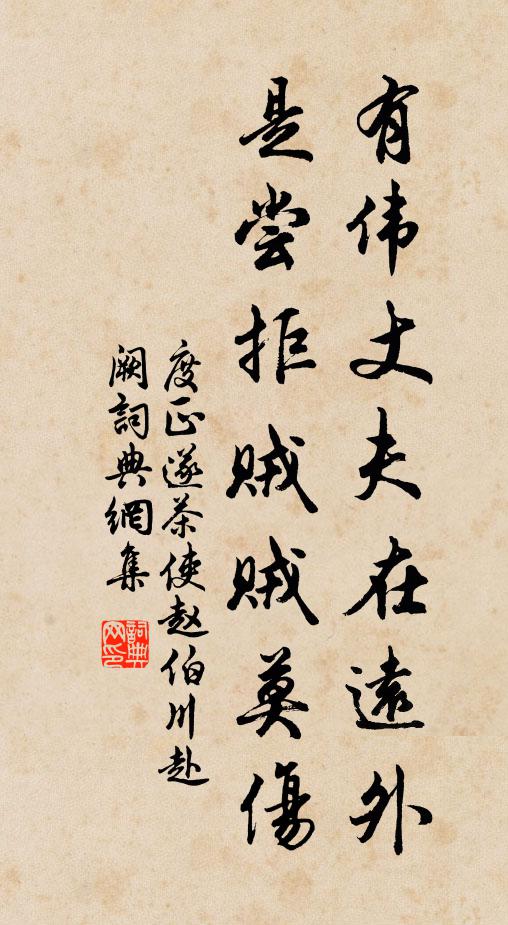 有伟丈夫在遠外
是尝拒贼贼莫傷
度正送茶使赵伯川赴
阙詞典網集
詞典网印